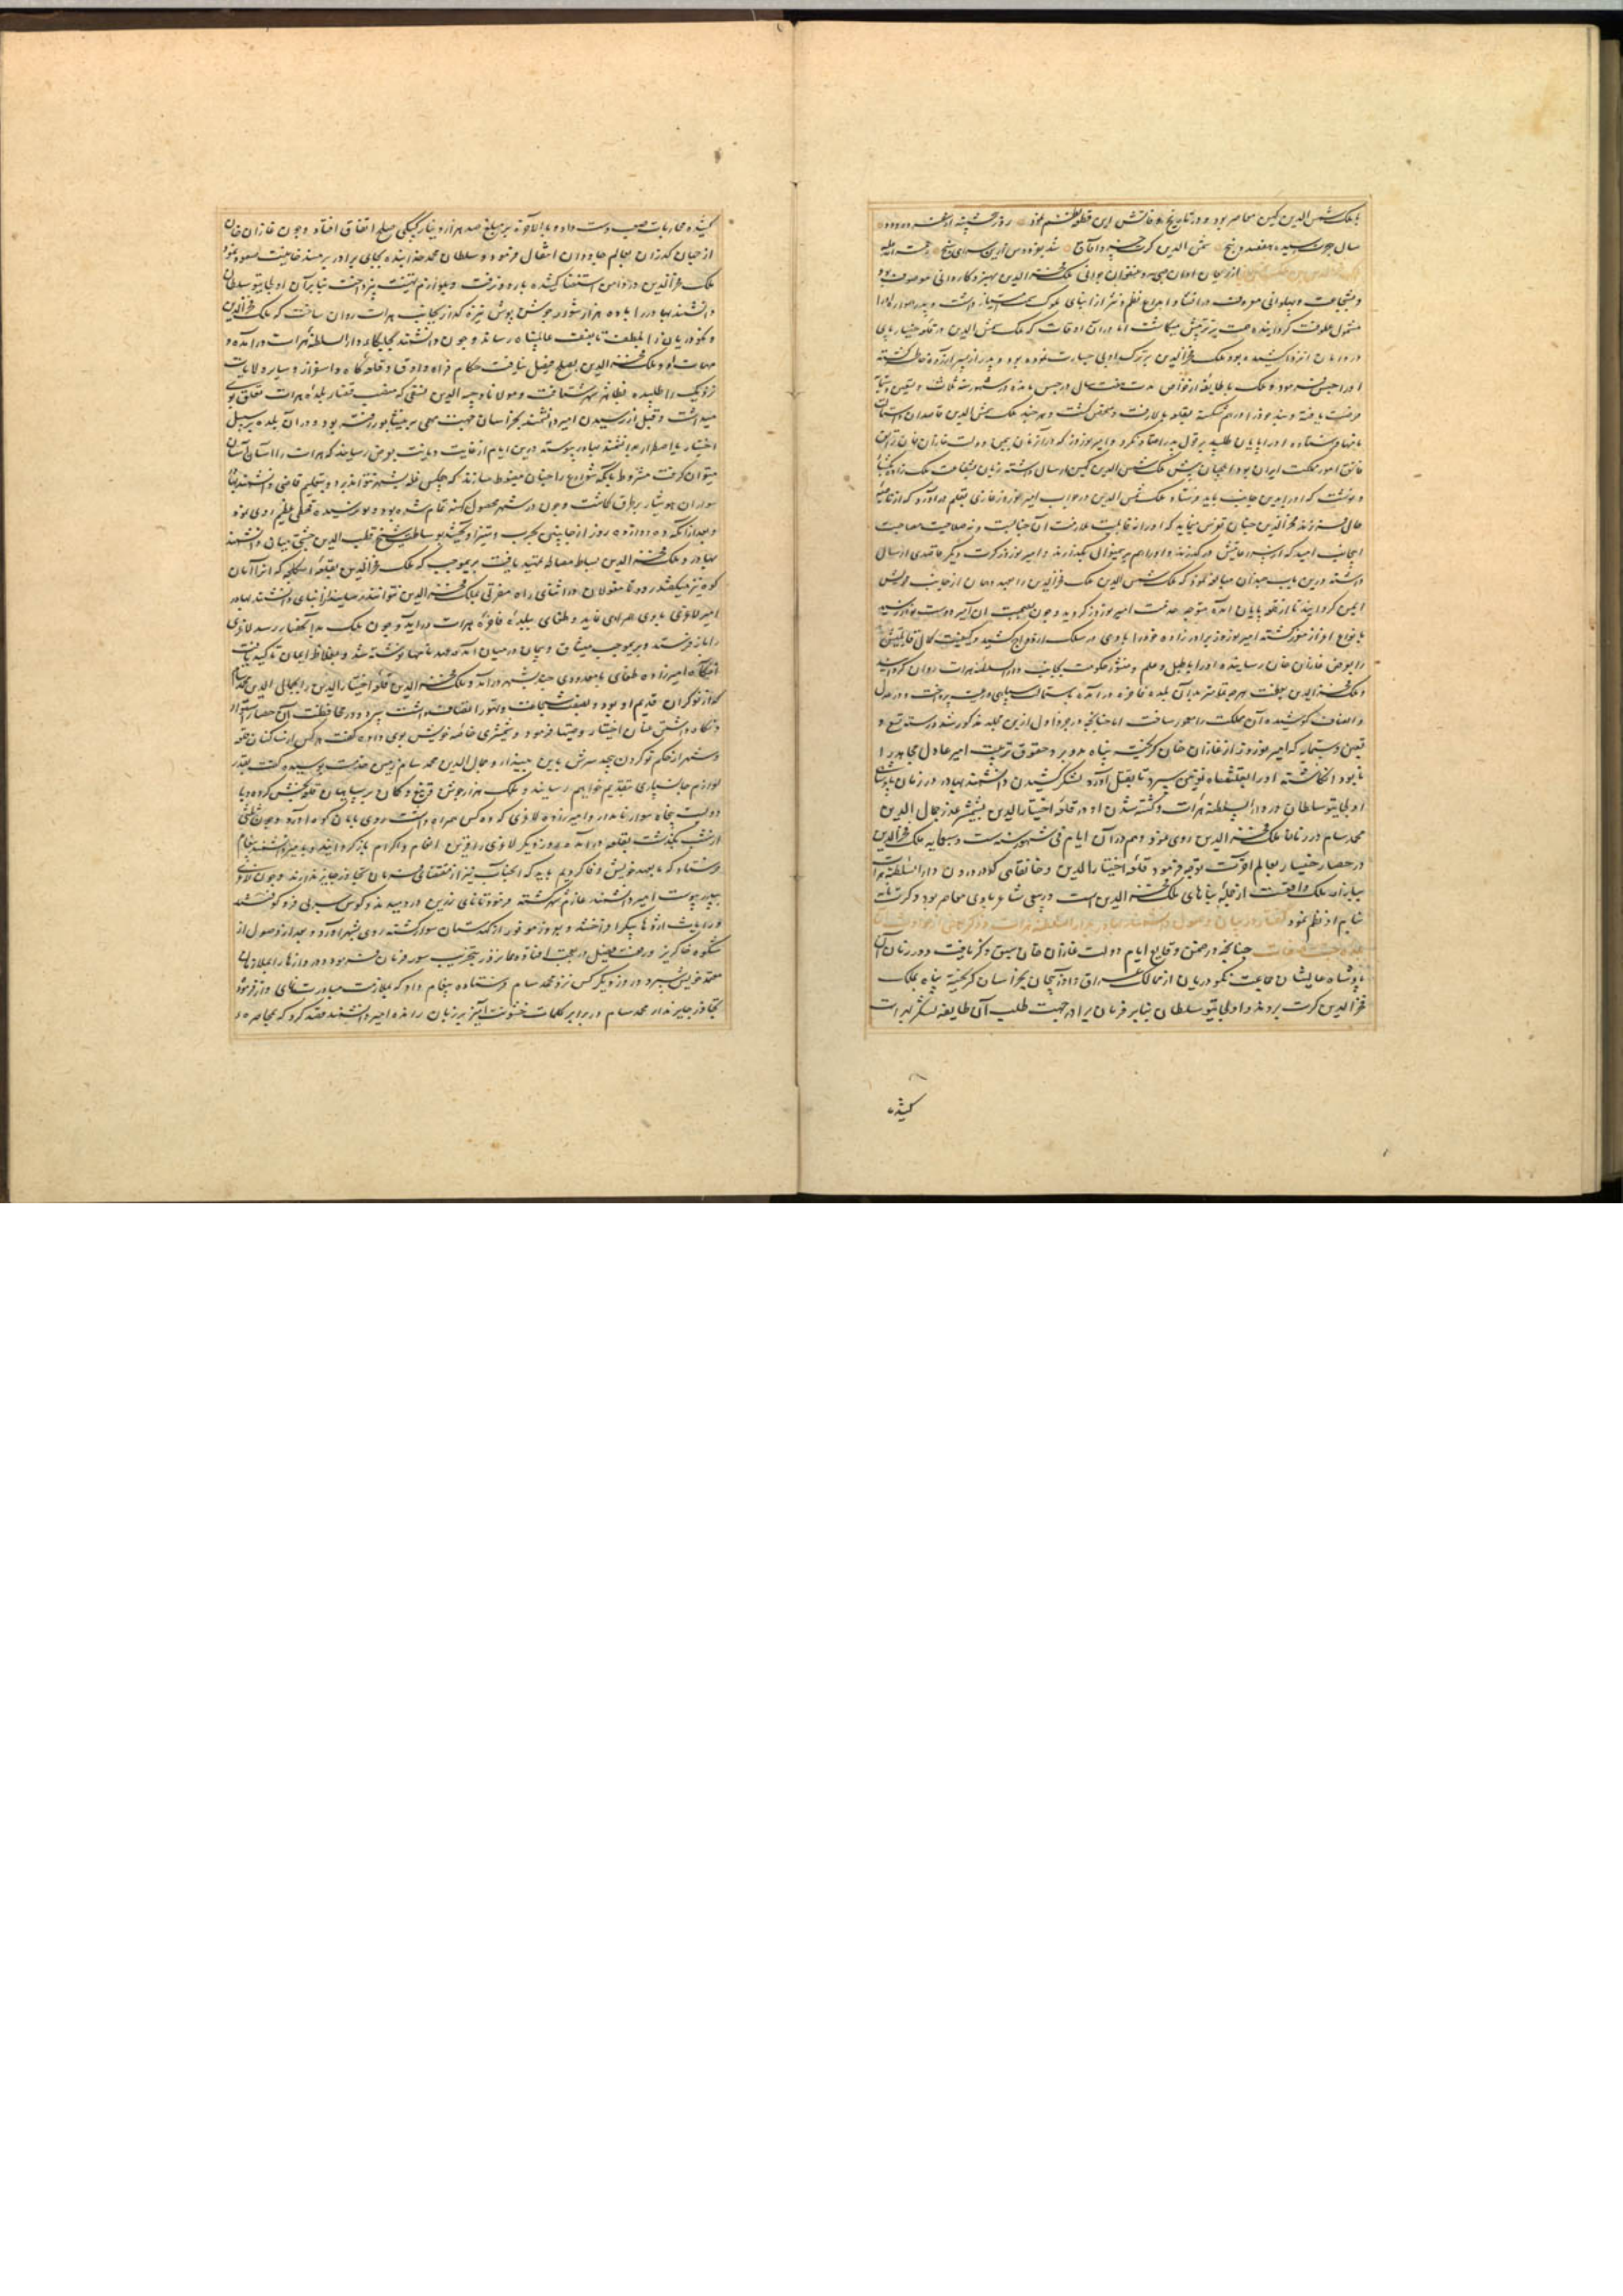 با ملک شمس الدین کهین معاصر بود و در تاریخ وفاتش این قطعه نظم نمود روز پنجشنبه از صفر ده و دو
سال هجرت رسیده هفتصد و پنج شمس الدین کرت خسرو آفاق شد بفردوس ازین سرای سپنج رحمت الله
از ریحان اوان صبی و عنفوان جوانی ملک فخر الدین بهنر و کاردانی موصوف بود
و بشجاعت و پهلوانی معروف در انشاء و ابداع نظم و نثر از ابنای ملوک سمت امتیاز داشت و پدر همواره او را
مشمول عاطفت گردانیده همت بر تربیتش میگماشت اما در آن اوقات که ملک شمس الدین در قلعه خیسار پای
در دامان انزوا کشیده بود ملک فخر الدین بر ترک ادبی جسارت نموده بود و پدر از پسر آزرده خاطر گشته
او را حبس فرمود و ملک با طایفه از خواص مدت هفت سال در حبس مانده در شهور سنه ثلاث و تسعین و ستمایه
فرصت یافته و بند خود را درهم شکسته بقلعه بالا رفت و متحصن گشت و هرچند ملک شمس الدین قاصدان و استمالت
نامها فرستاده او را بپایان طلبید بر قول پدر اعتماد نکرد و امیر نوروز که در آن زمان بیمن دولت غازان خان
قانون امور مملکت ایران بود ایلچیان پیش ملک شمس الدین کهین ارسال داشته زبان بشفاعت ملک زاده بگشاد
و نوشت که او را بدین جانب باید فرستاد ملک شمس الدین در جواب امیر نوروز غازی بقلم در آورد که از ناصیه
حال فرزند فخر الدین چنان تفرس مینماید که او را نه قابلیت ملازمت آن جنابست و نه صلاحیت مصاحبت
اینجانب امید که از سر رعایتش در گذرند و او را هم برین منوال بگذارند و امیر نوروز کرت دیگر قاصدی ارسال
داشته درین باب چندان مبالغه نمود که ملک شمس الدین ملک فخر الدین را بعهد و امان از جانب خویش
ایمن گردانید تا از قلعه پایان آمده متوجه خدمت امیر نوروز گردید و چون بصحبت آن امیر دوست نواز رسید
بانواع اعزاز مفوز گشته امیر نوروز برادر زاده خود را با وی در سلک ازدواج کشید و کیفیت کمال قابلیتش
را بعرض غازان خان رسانیده او را با طبل و علم و منشور حکومت بجانب دار السلطنه هرات روان گردانید
و ملک فخر الدین بعظمت هرچه تمامتر بدان بلده فاخره در آمده باستمالت سپاهی و رعیت پرداخت و در عدل
و انصاف کوشیده آن مملکت را معمور ساخت اما چنانچه در جزو اول ازین مجلد مذکور شد در سنه تسع و
تسعین و ستمایه که امیر نوروز از غازان خان گریخته پناه بدو برد حقوق تربیت امیر عادل مجاهد را
نابود انگاشته او را بقتلغشاه نوئین سپرد تا بقتل آورد و لشکر کشیدن دانشمند بهادر در زمان پادشاهی
اولجایتو سلطان در دار السلطنه هرات و کشته شدن او در قلعه اختیار الدین بشمشیر غدر جمال الدین
محمد سام در زمان ملک فخر الدین روی نمود و هم در آن ایام فی شهور سنه ست و سبعمایه ملک فخر الدین
در حصار خیسار بعالم آخرت توجه فرمود قلعه اختیار الدین و خانقاهی که در درون دار السلطنه هرات
بازار ملک واقعست از جمله بناهای ملک فخر الدین است و ربیعی شاعر با وی معاصر بود و کرت نامه
بنام او نظم نمود گفتار در بیان وصول دانشمند بهادر بدار السلطنه هرات و ذکر بعضی از حوادث
چنانچه در ضمن وقایع ایام دولت غازان خان سبق ذکر یافت در زمان آن
پادشاه عالیشان جماعت نکودریان از ممالک عراق و آذربیجان بخراسان گریخته پناه بملک
فخر الدین کرت بردند و اولجایتو سلطان بنابر فرمان برادر جهت طلب آن طایفه لشکر بهرات
کشیده
کشیده محاربات صعب دست داد و بالاخره بر مبلغ صد هزار دینار کپکی صلح اتفاق افتاد و چون غازان خان
از جهان گذران بعالم جاودان انتقال فرمود و سلطان محمد خدابنده بجای برادر بر مسند خانیت صعود نمود
ملک فخر الدین در دامن استغنا کشیده باردو نرفت و بلوازم تهنیت نپرداخت بنابر آن اولجایتو سلطان
دانشمند بهادر را با ده هزار سوار جوشن پوش نیزه گذار بجانب هرات روان ساخت که ملک فخر الدین
و نکودریان را بلطف یا بعنف بعالیپناه رساند و چون دانشمند بجلگاء دار السلطنه هرات در آمده
مهمات او و ملک فخر الدین بصلح فیصل نیافت حکام فراه و اوق و قلعه گاه و اسفزار و سایر ولایات
نزدیک را طلبیده بظاهر شهر شتافت و مولانا وجیه الدین نسفی که منصب قضاء بلده هرات تعلق بوی
میداشت و قبل از رسیدن امیر دانشمند بخراسان جهت مهمی بر نیشابور رفته بود و در آن بلده بر سبیل
اختیار یا اضطرار بدانشمند بهادر پیوسته درین ایام از غایت دیانت بعرض رسانید که هرات را آسان آسان
میتوان گرفت مشروط بآنکه شوارع را چنان مضبوط سازند که هیچکس غله بشهر نتواند برد و بتعلیم قاضی دانشمند بهادر
سواران هوشیار بر طرق گماشت و چون در شهر محصول کهنه تمام شده بود و نو نرسیده قحطی عظیم روی نمود
و بعد از آنکه ده دوازده روز از جانبین بحرب و ستیز اوکشید بوساطت شیخ قطب الدین چشتی میان دانشمند
بهادر و ملک فخر الدین بساط مصالحه تمهید یافت بر موجب که ملک فخر الدین بقلعه اسکلجه که آنرا امان
کوه نیز میگفتند رود تا مغولان در اثنای راه مضرتی بملک فخر الدین نتوانند رسانید از ابنای دانشمند بهادر
امیر لاغری با وی همراهی نماید و طغای ببلده فاخره هرات در آید و چون ملک بدان حصار رسد لاغری
را باز فرستد و بر موجب میثاق و پیمان در میان آمد عهدنامها نوشته شد و بغلاظ ایمان تاکید یافت
آنگاه امیرزاده طغای با معدودی چند بشهر در آمد و ملک فخر الدین قلعه اختیار الدین را بجمال الدین محمد سام
که از نوکران قدیم او بود و بصفت شجاعت و تهور اتصاف داشت سپرد و در محافظت آن حصار
و نگاه داشتن عنان اختیار وصیتها فرمود و خنجری خاصه خویش بوی داده گفت هرکس از ساکنان قلعه
و شهر از حکم تو گردن پیچد سرش باین خنجر بیندازد جمال الدین محمد سام زمین خدمت بوسیده گفت بقدر
لوازم جانسپاری بتقدیم خواهم رسانید و ملک هزار جوشن و تیغ و کمان بر سپاهیان قلعه بخش کرده و با
دویست پنجاه سوار نامدار و امیرزاده لاغری که ده کس همراه داشت روی بامان کوه آورد و چون ثلثی
از شب بگذشت بقلعه در آمد و روز دیگر لاغری را قرین انعام و اکرام باز گردانید و بامیر دانشمند پیغام
فرستاد که ما بعهد خویش وفا کردیم باید که آنجناب نیز از مقتضای پیمان تجاوز جایز ندارند و چون لاغری
بپدر پیوست امیر دانشمند عازم شهر گشته فرمود تا نای زرین در دمیدند و کوس حربی فرو کوفتند
و رایت اژدها پیکر افراختند و بفر نامحصور از کهدستان سوار گشته روی بشهر آورد و بعد از وصول از
شکوه خاکریز و رفعت فصیل در تعجب افتاده همان روز بتخریب سور فرمان فرمود و دروازها را بملازمان
معتمد خویش سپرد و روز دیگر کس نزد محمد سام فرستاده پیغام داد که بملازمت مبادرت نمای و از فرموده
تجاوز جایز مدار محمد سام در برابر کلمات خشونت آمیز بر زبان رانده امیر دانشمند قصد کرد که بمحاصره